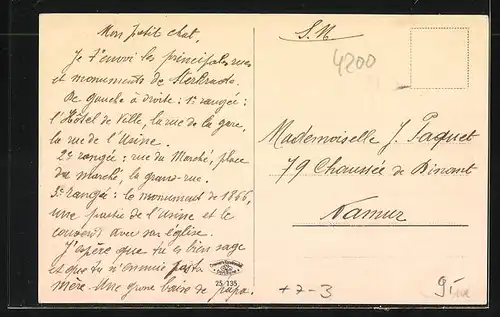 Mon petit chat
Je t'envoi les principales rues
et monuments de Sterkrade.
De gauche à droite: 1e rangée:
l'Hôtel de Ville, la rue de la gare,
la rue de l'Usine.
2e rangée; rue du Marché, place
du marché, la grand-rue.
3e rangée: le monument de 1866,
une partie de l'Usine et le
couvent avec son église.
J'espère que tu es bien sage
et que tu n'ennuie pas ta
mère. Une grosse baise de papa.
S.M
4200
Mademoiselle J. Paquet
79 Chaussée de Dinant
Namur
25/135
+7-3
9,-